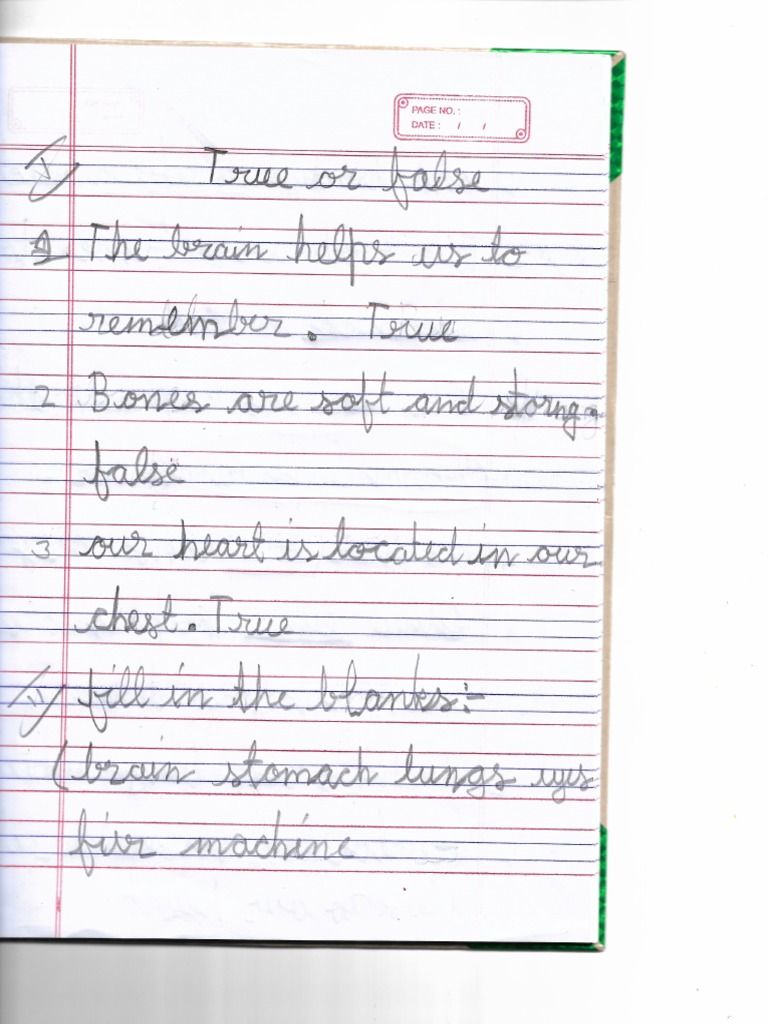 PAGE NO. :
DATE : / /
I) True or false
1 The brain helps us to
remember. True
2 Bones are soft and storng.
false
3 our heart is located in our
chest. True
II) fill in the blanks:-
(brain stomach lungs eyes
five machine